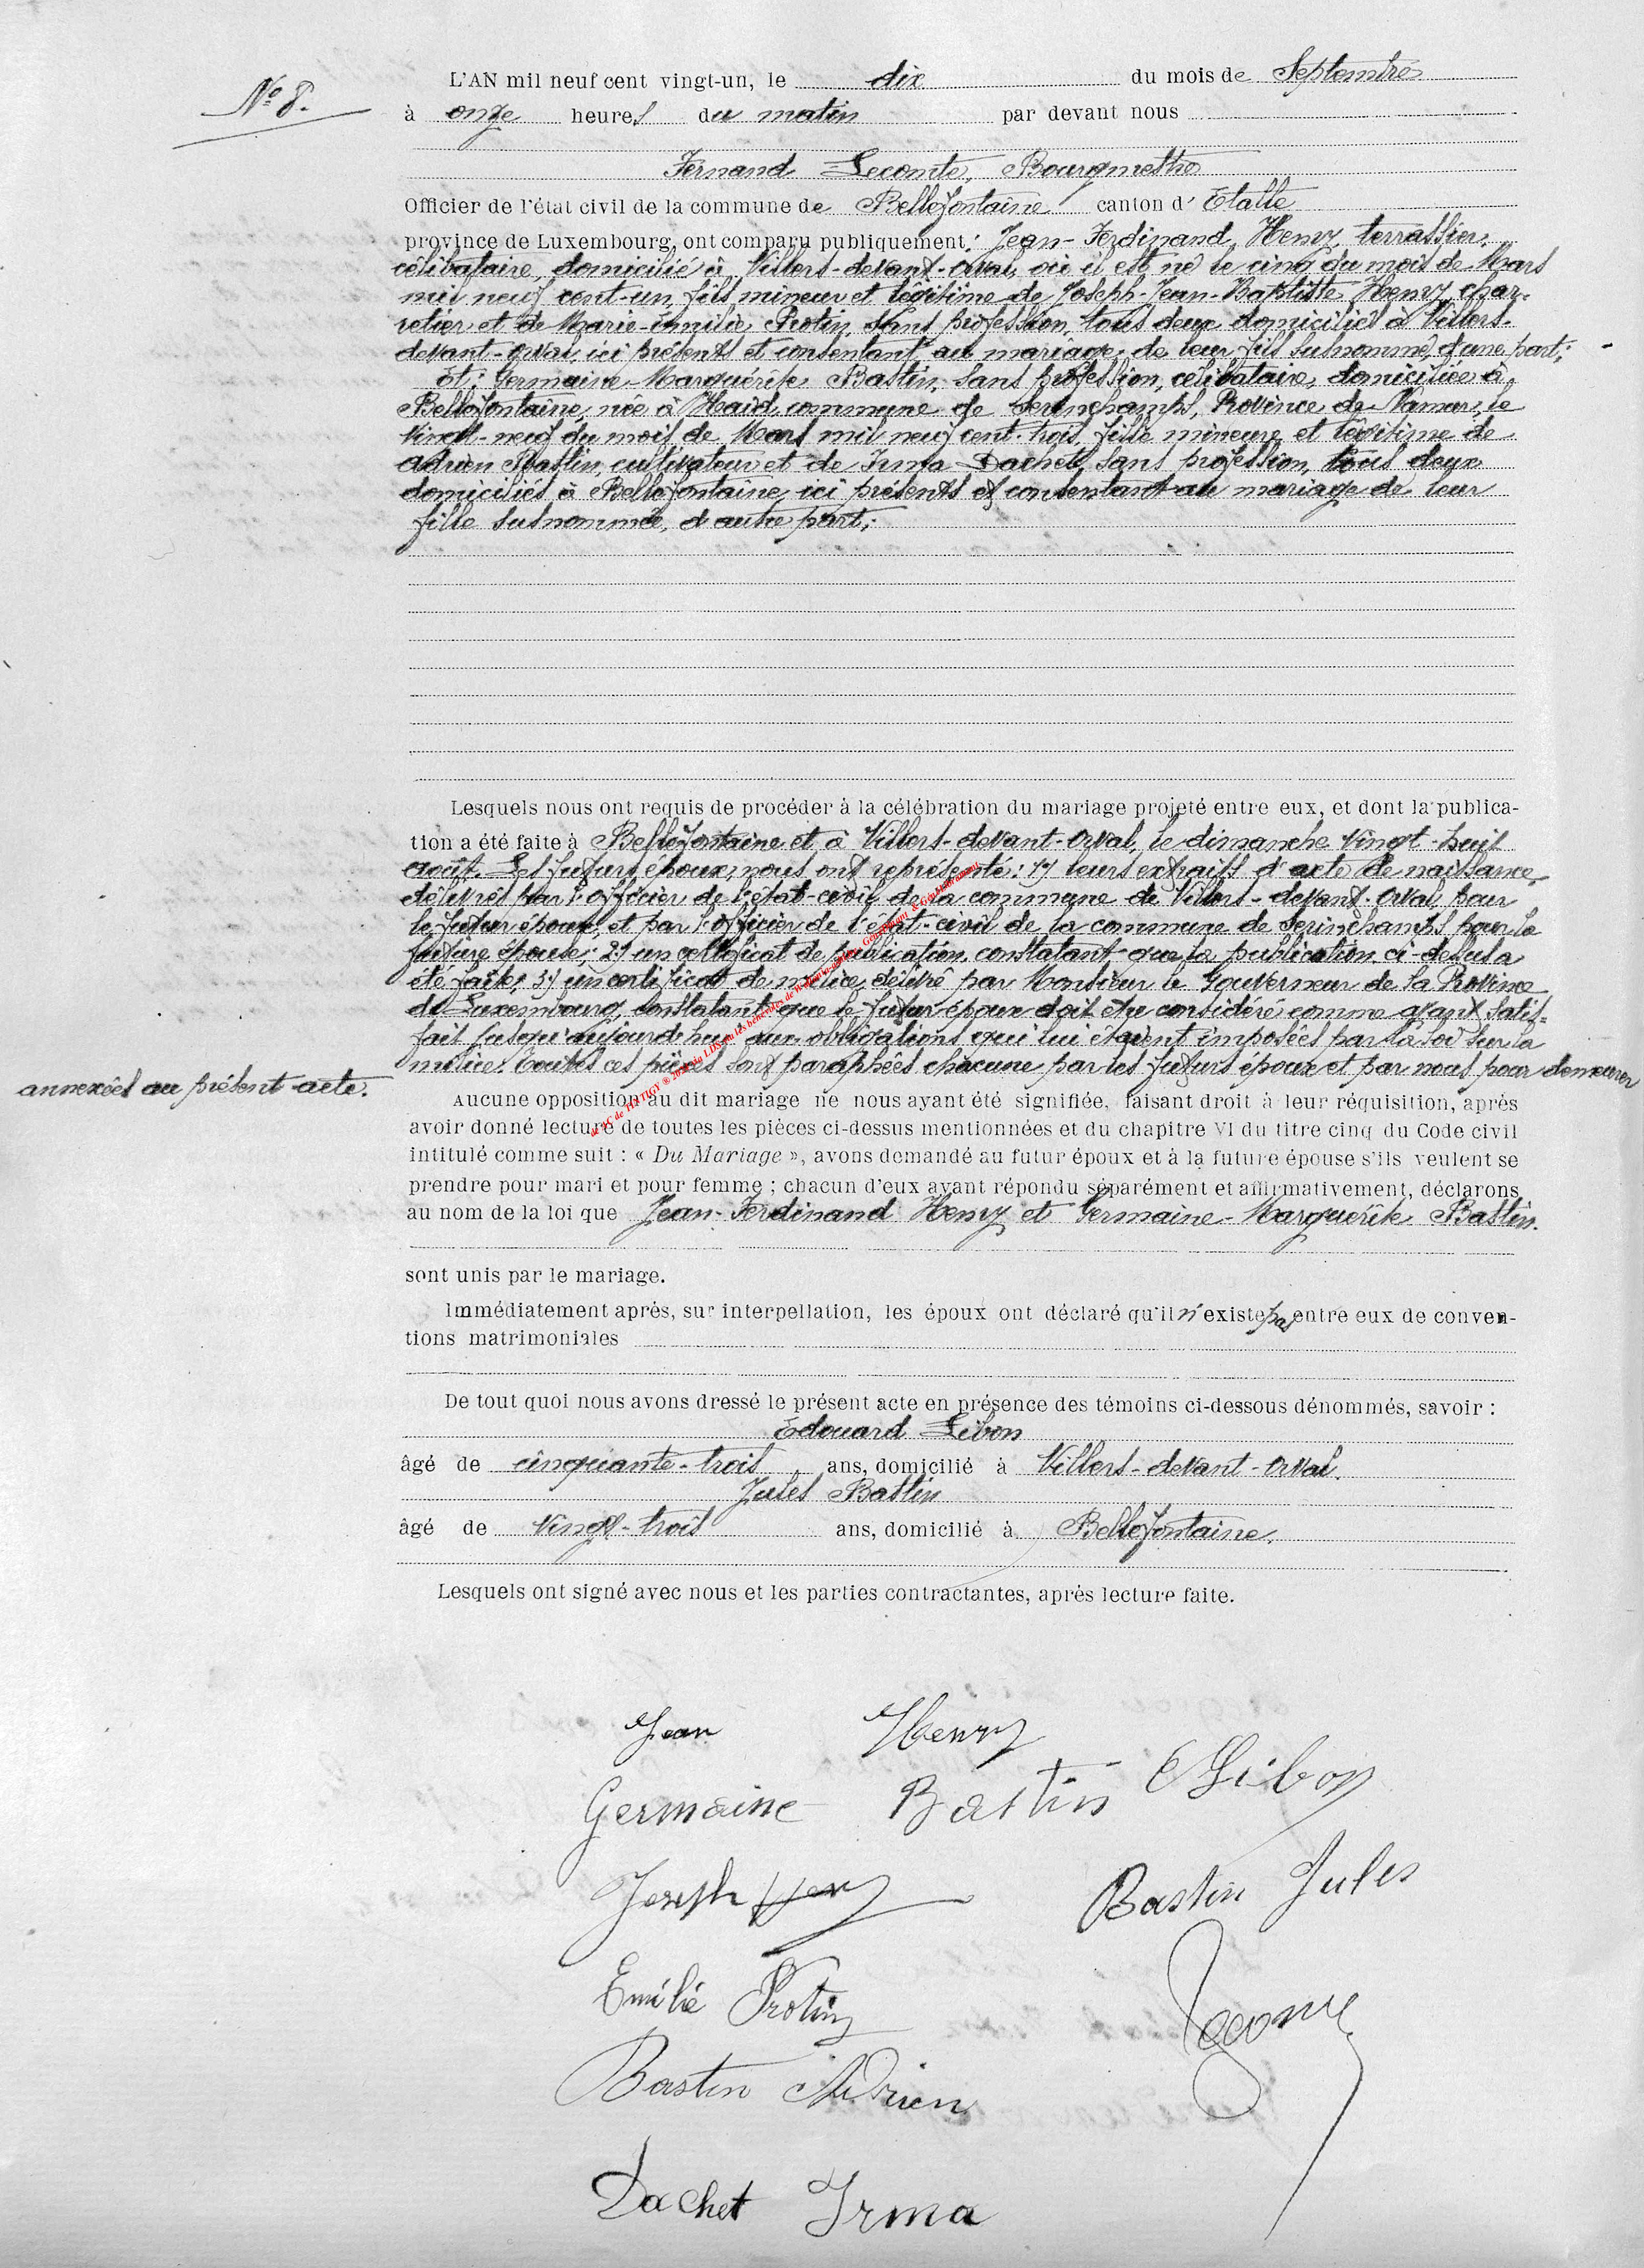 N° 8.
L'AN mil neuf cent vingt-un, le dix du mois de Septembre
à onze heures du matin par devant nous
Fernand Lecomte, Bourgmestre
Officier de l'état civil de la commune de Bellefontaine canton d' Etalle
province de Luxembourg, ont comparu publiquement : Jean-Ferdinand Henry, terrassier,
célibataire, domicilié à Villers-devant-Orval, où il est né le cinq du mois de Mars
mil neuf cent-un, fils mineur et légitime de Joseph-Jean-Baptiste Henry, char-
retier et de Marie-émilie Protin, sans profession, tous deux domiciliés à Villers-
devant-Orval, ici présents et consentant au mariage de leur fils susnommé, d'une part;
Et : Germaine-Marguérite Bastin, sans profession, célibataire, domiciliée à
Bellefontaine, née à Haid, commune de Serinchamps, Province de Namur, le
vingt-neuf du mois de Mars mil neuf cent-trois, fille mineure et légitime de
Adrien Bastin, cultivateur et de Irma Dachet, sans profession, tous deux
domiciliés à Bellefontaine, ici présents et consentant au mariage de leur
fille susnommée, d'autre part;
Lesquels nous ont requis de procéder à la célébration du mariage projeté entre eux, et dont la publica-
tion a été faite à Bellefontaine et à Villers-devant-Orval, le dimanche vingt-huit
août. Les futurs époux, nous ont représenté : 1°) leurs extraits d'acte de naissance,
délivrés par l'officier de l'état-civil de la commune de Villers-devant-Orval pour
le futur époux, et par l'officier de l'état-civil de la commune de Serinchamps pour la
future épouse; 2°) un certificat de publication, constatant que la publication ci-dessus a
été faite; 3°) un certificat de milice, délivré par Monsieur le Gouverneur de la Province
de Luxembourg, constatant que le futur époux doit être considéré comme ayant satis-
fait jusqu'aujourd'hui aux obligations qui lui étaient imposées par la loi sur la
milice. Toutes ces pièces sont paraphées chacune par les futurs époux et par nous pour demeurer
annexées au présent acte.
Aucune opposition au dit mariage ne nous ayant été signifiée, faisant droit à leur réquisition, après
avoir donné lecture de toutes les pièces ci-dessus mentionnées et du chapitre VI du titre cinq du Code civil
intitulé comme suit : « Du Mariage », avons demandé au futur époux et à la future épouse s'ils veulent se
prendre pour mari et pour femme ; chacun d'eux ayant répondu séparément et affirmativement, déclarons
au nom de la loi que Jean-Ferdinand Henry et Germaine-Marguérite Bastin.
sont unis par le mariage.
Immédiatement après, sur interpellation, les époux ont déclaré qu'il n'existe pas entre eux de conven-
tions matrimoniales
De tout quoi nous avons dressé le présent acte en présence des témoins ci-dessous dénommés, savoir :
Edouard Libon
âgé de cinquante-trois ans, domicilié à Villers-devant-Orval.
Jules Bastin
âgé de vingt-trois ans, domicilié à Bellefontaine.
Lesquels ont signé avec nous et les parties contractantes, après lecture faite.
Jean Henry
Germaine Bastin E Libon
Joseph Henry Bastin Jules
Emilie Protin
Lecomte
Bastin Adrien
Dachet Irma